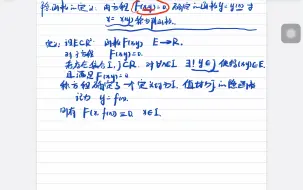 隐函数定义: 由方程 F(x,y)=0 确定的函数 y=y(x) 或
x=x(y) 称为隐函数.
定义: 设E⊂R², 函数 F(x,y) E→R.
对于方程 F(x,y)=0
若存在 I, J⊂R. 对∀x∈I ∃! y∈J 使得(x,y)∈E.
且满足 F(x,y)=0
称方程确定了一个定义域为I, 值域为J的隐函数
记为 y=f(x).
则有 F(x, f(x))≡0, x∈I.